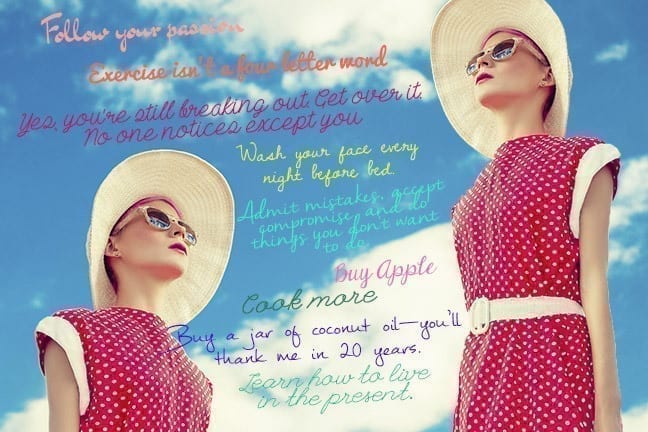 Follow your passion
Exercise isn't a four letter word
Yes, you're still breaking out. Get over it.
No one notices except you
Wash your face every
night before bed.
Admit mistakes, accept
compromise, and do
things you don't want
to do
Buy Apple
Cook more
Buy a jar of coconut oil—you'll
thank me in 20 years.
Learn how to live
in the present.